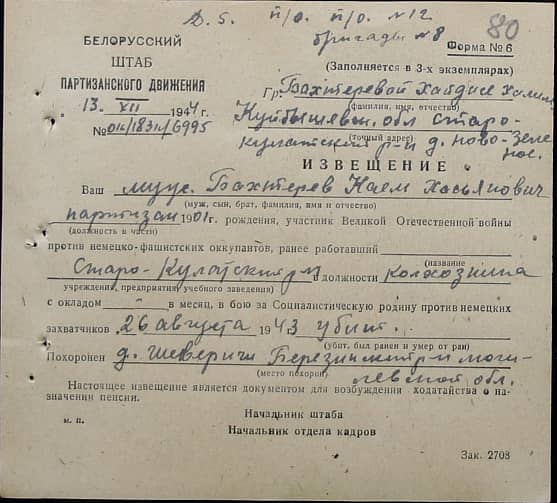 Д. 5. п/о. п/о. №12
бригады №8
80
БЕЛОРУССКИЙ
ШТАБ
ПАРТИЗАНСКОГО ДВИЖЕНИЯ
13. XII 1944 г.
№ 6995
Форма № 6
(Заполняется в 3-х экземплярах)
Гр. Бахтеревой
(фамилия, имя, отчество)
Куйбышевск. обл Старо-
(точный адрес)
кулаткский р-н д. Ново-Зеле
ное.
ИЗВЕЩЕНИЕ
Ваш муж. Бахтерев Наем Хасьянович
(муж, сын, брат, фамилия, имя и отчество)
партизан 1901 г. рождения, участник Великой Отечественной войны
(должность в части)
против немецко-фашистских оккупантов, ранее работавший
(название
Старо-Кулатский р-н в должности колхозника
учреждения, предприятия, учебного заведения)
с окладом " в месяц, в бою за Социалистическую родину против немецких
захватчиков 26 августа 1943 убит.
(убит, был ранен и умер от ран)
Похоронен д. Шеверичи Березинский р-н Моги-
(место похорон)
левской обл.
Настоящее извещение является документом для возбуждения ходатайства о на-
значении пенсии.
Начальник штаба
м. п.
Начальник отдела кадров
Зак. 2708